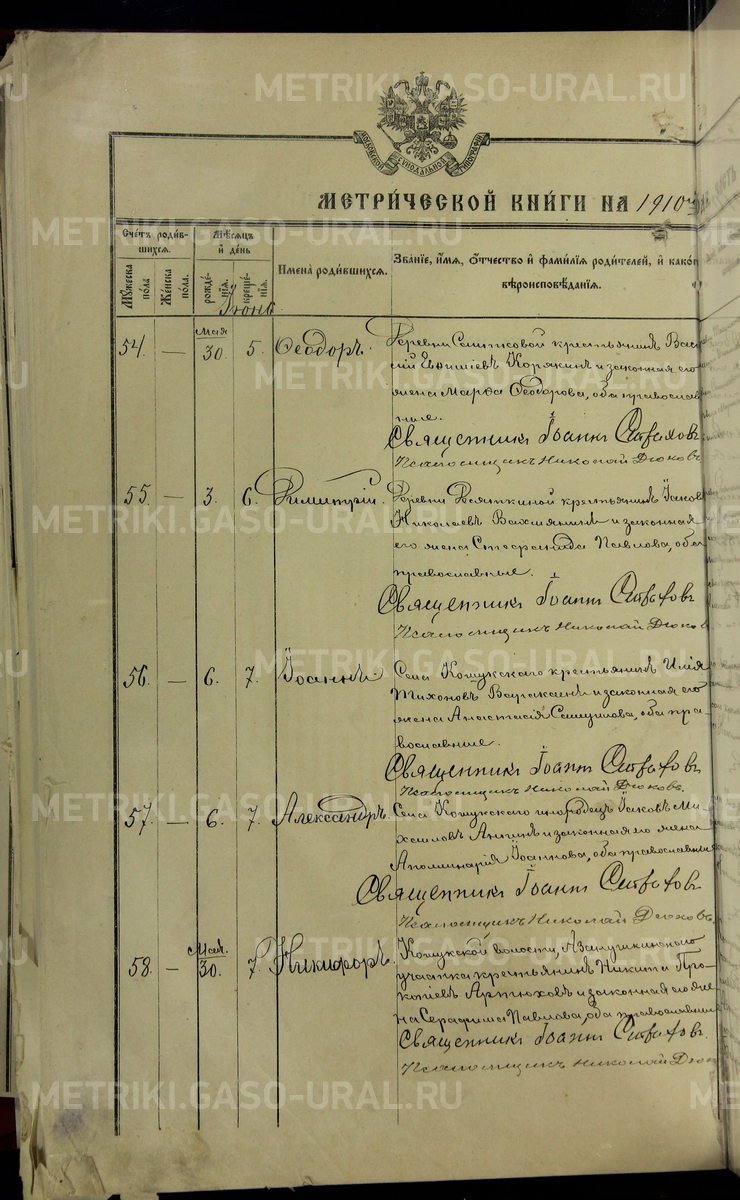 МОСКОВСКОЙ СУНОДАЛЬНОЙ ТИПОГРАФІИ
МЕТРИ́ЧЕСКОЙ КНИ́ГИ НА 1910
Сче́тъ роди́в-
шихся.
Му́жеска по́ла.
Же́нска по́ла.
Мѣ́сяцъ
и҆ де́нь
рожде́-
нїя.
креще́-
нїя.
И҆мена̀ роди́вшихся.
Зва́нїе, и҆́мя, ѻ҆́тчество и҆ фами́лїя роди́телей, и҆ како́гѡ
вѣроисповѣ́данїя.
Іюнь.
54. — Мая 30. 5. Ѳеодоръ. Деревни Селитковой крестьянинъ Васи-
лій Корякинъ и законная его
жена Марѳа Ѳеодорова, оба православ-
ные.
Священникъ Іоаннъ Стаховъ
Псаломщикъ Николай Дюковъ
55. — 3. 6. Димитрій. Деревни крестьянинъ Іаковъ
Николаевъ и законная
его жена Стефанида Павлова, оба
православные.
Священникъ Іоаннъ Стаховъ
Псаломщикъ Николай Дюковъ
56. — 6. 7. Іоаннъ. Села Кошукскаго крестьянинъ Илія
Тихоновъ и законная его
жена Анастасія Самуилова, оба пра-
вославные.
Священникъ Іоаннъ Стаховъ
Псаломщикъ Николай Дюковъ.
57. — 6. 7. Александръ. Села Кошукскаго инородецъ Іаковъ Ми-
хаиловъ и законная его жена
Аполинарія Іоаннова, оба православные
Священникъ Іоаннъ Стаховъ
Псаломщикъ Николай Дюковъ.
58. — Мая. 30. 7. Никифоръ. Кошукской волости,
участка крестьянинъ Никита Про-
копіевъ Артюховъ и законная его же-
на Серафима Павлова, оба православные
Священникъ Іоаннъ Стаховъ.
Псаломщикъ Николай Дюковъ
METRIKI.GASO-URAL.RU